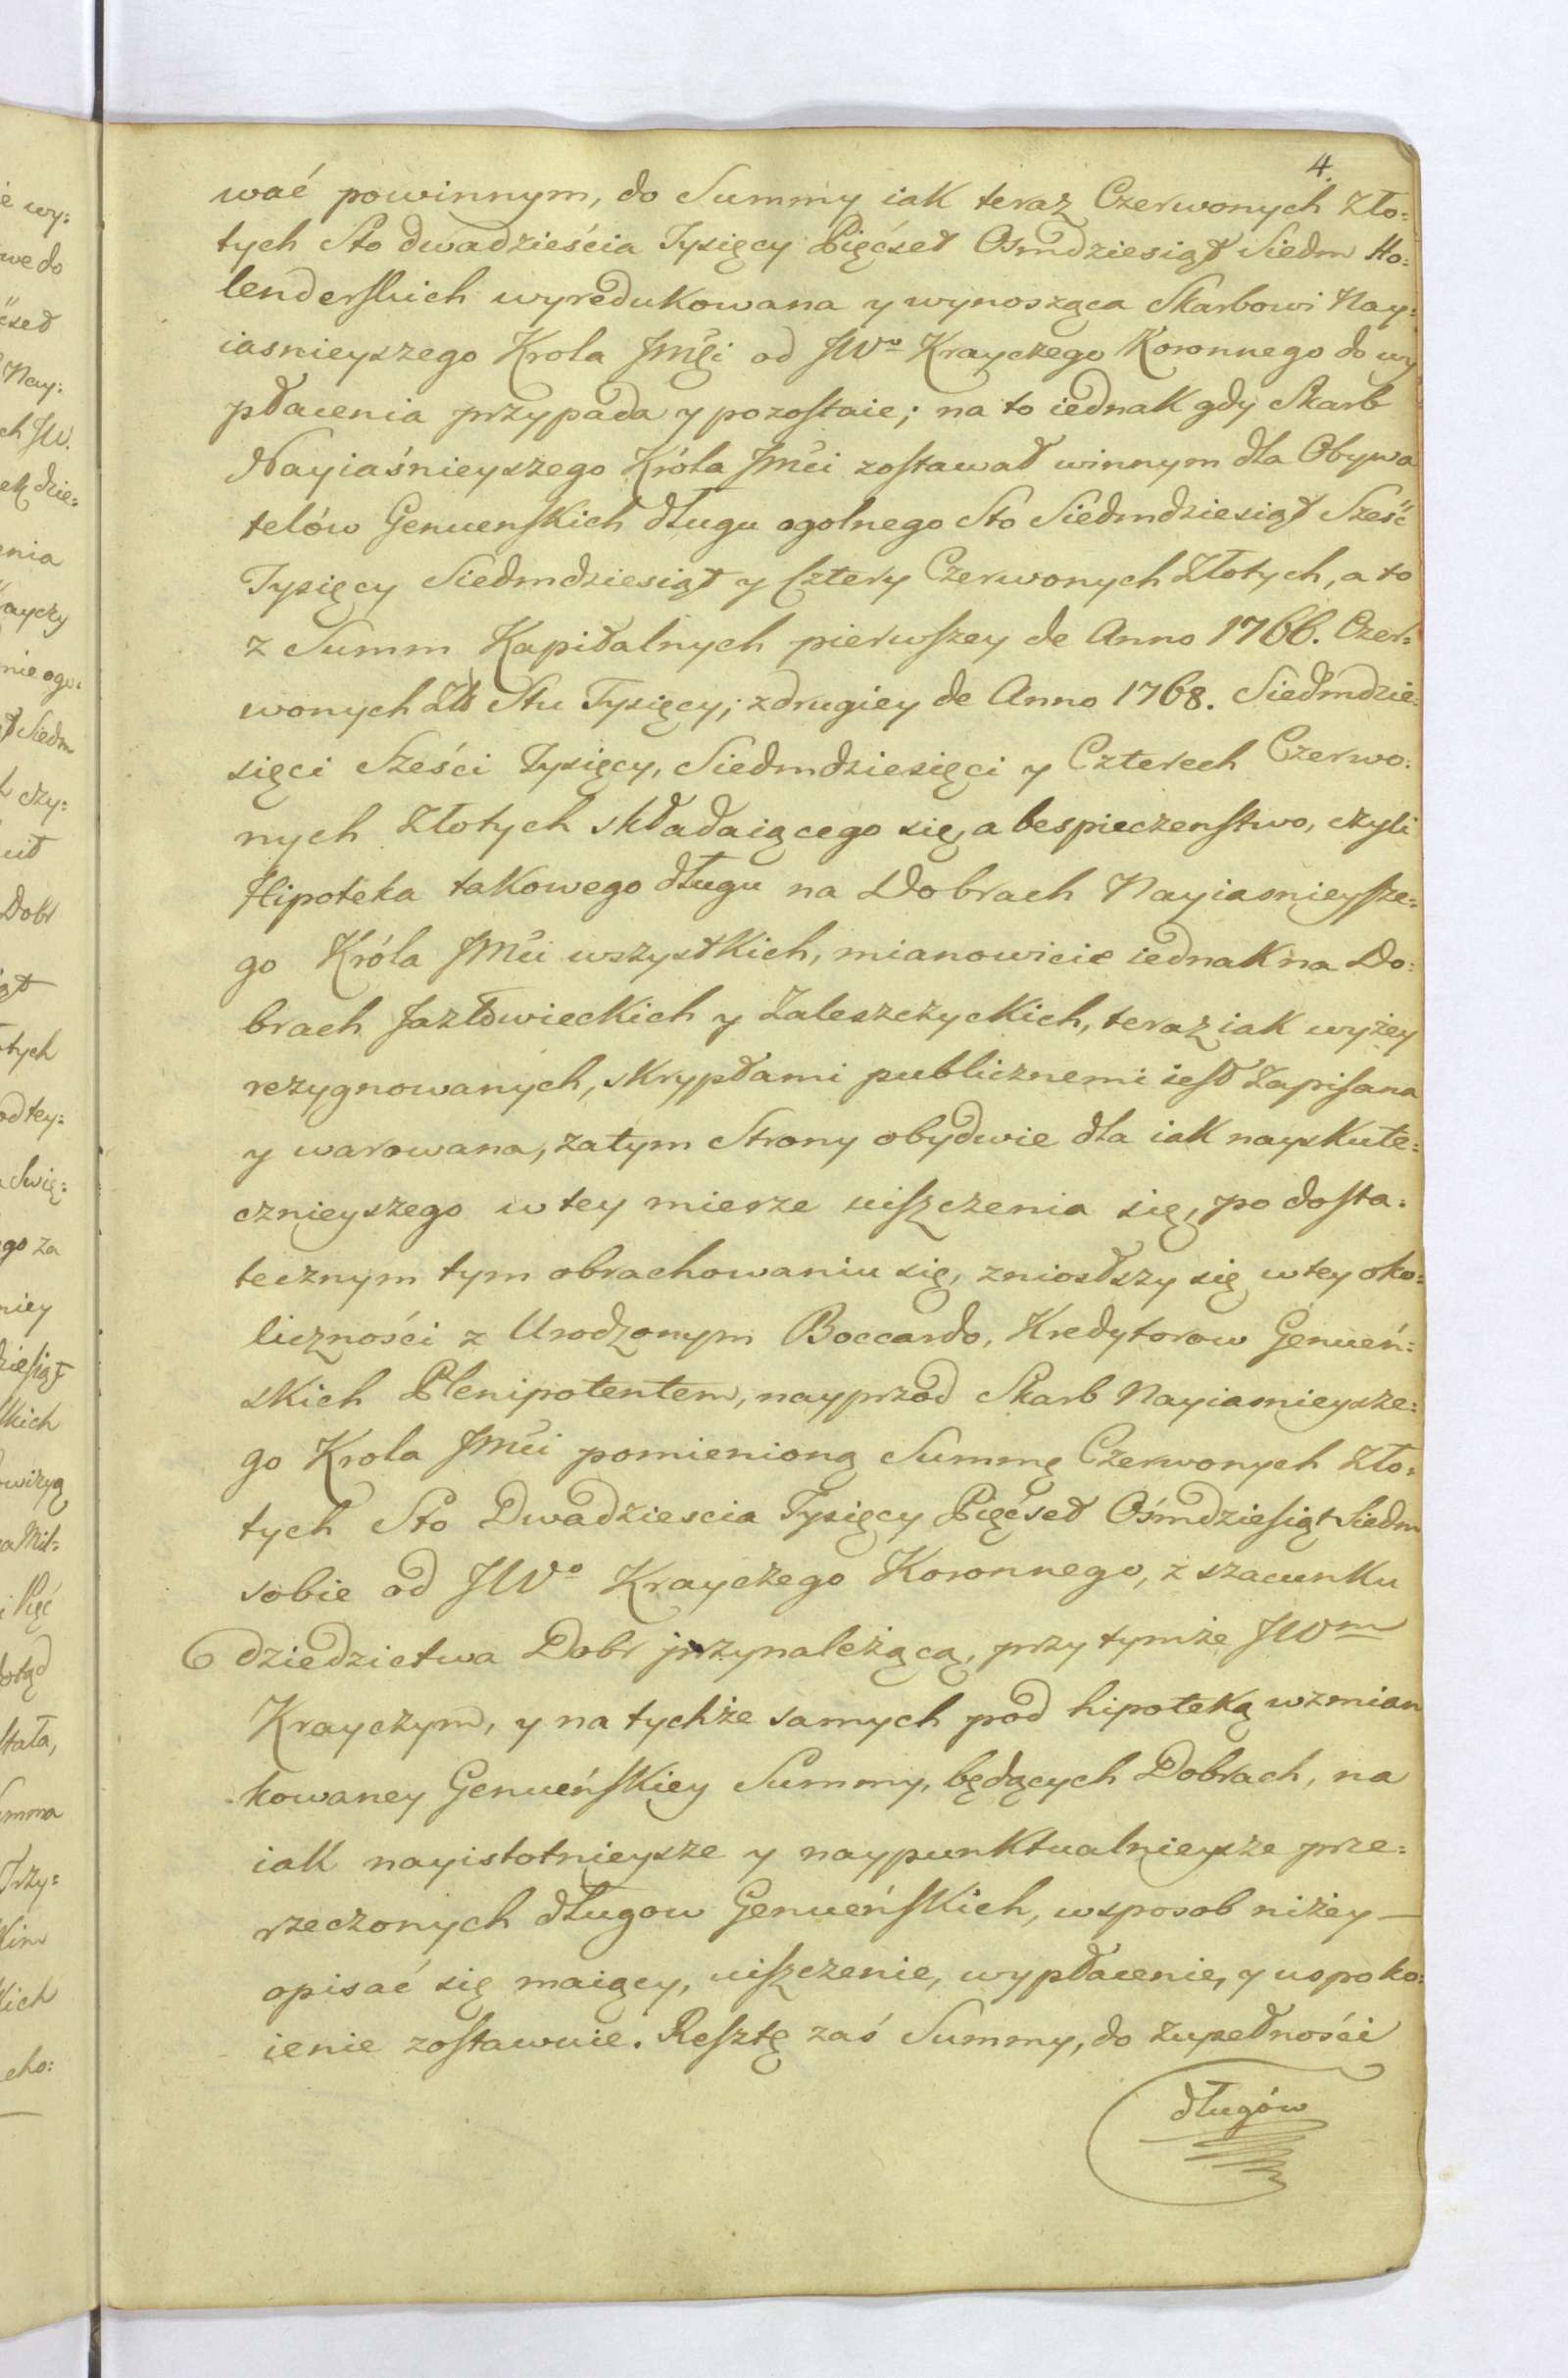 4.
wać powinnym, do Summy iak teraz Czerwonych Zło:
tych Sto dwadzieścia Tysięcy Pięćset Osmdziesiąt Siedm Ho:
lenderskich wyredukowana y wynosząca Skarbowi Nay:
iasnieyszego Krola Jmći od JWo Krayczego Koronnego do wy
płacenia przypada y pozostaie; na to iednak gdy Skarb
Nayiaśnieyszego Króla Jmći zostawał winnym dla Obywa
telów Genuenskich długu ogolnego Sto Siedmdziesiąt Sześć
Tysięcy Siedmdziesiąt y Cztery Czerwonych Złotych, a to
z Summ Kapitalnych pierwszey de Anno 1766. Czer:
wonych Zło Stu Tysięcy; z drugiey de Anno 1768. Siedmdzie:
sięci Sześci Tysięcy, Siedmdziesięci y Czterech Czerwo:
nych Złotych składaiącego się, a bespieczenstwo, czyli
Hipoteka takowego długu na Dobrach Nayiasnieysze:
go Króla Jmći wszystkich, mianowicie iednak na Do:
brach Jazłowieckich y Zaleszczyckich, teraz iak wyżey
rezygnowanych, skryptami publicznemi iest Zapisana
y warowana, zatym Strony obydwie dla iak nayskute:
cznieyszego w tey mierze uiszczenia się, po dosta:
tecznym tym obrachowaniu się, zniosłszy się w tey oko:
liczności z Urodzonym Boccardo, Kredytorow Genueń:
skich Plenipotentem, nayprzod Skarb Nayiasnieysze:
go Krola Jmći pomienioną Summę Czerwonych Zło:
tych Sto Dwadziescia Tysięcy Pięćset Ośmdziesiąt Siedm
sobie od JWo Krayczego Koronnego, z szacunku
dziedzictwa Dobr przynależącą, przy tymże JWm
Krayczym, y na tychże samych pod hipoteką wzmian
kowaney Genueńskiey Summy, będących Dobrach, na
iak nayistotnieysze y naypunktualnieysze prze:
rzeczonych długow Genueńskich, w sposob niżey
opisać się maiący, uiszczenie, wypłacenie, y uspoko:
ienie zostawuie. Resztę zaś Summy, do zupełności
długów